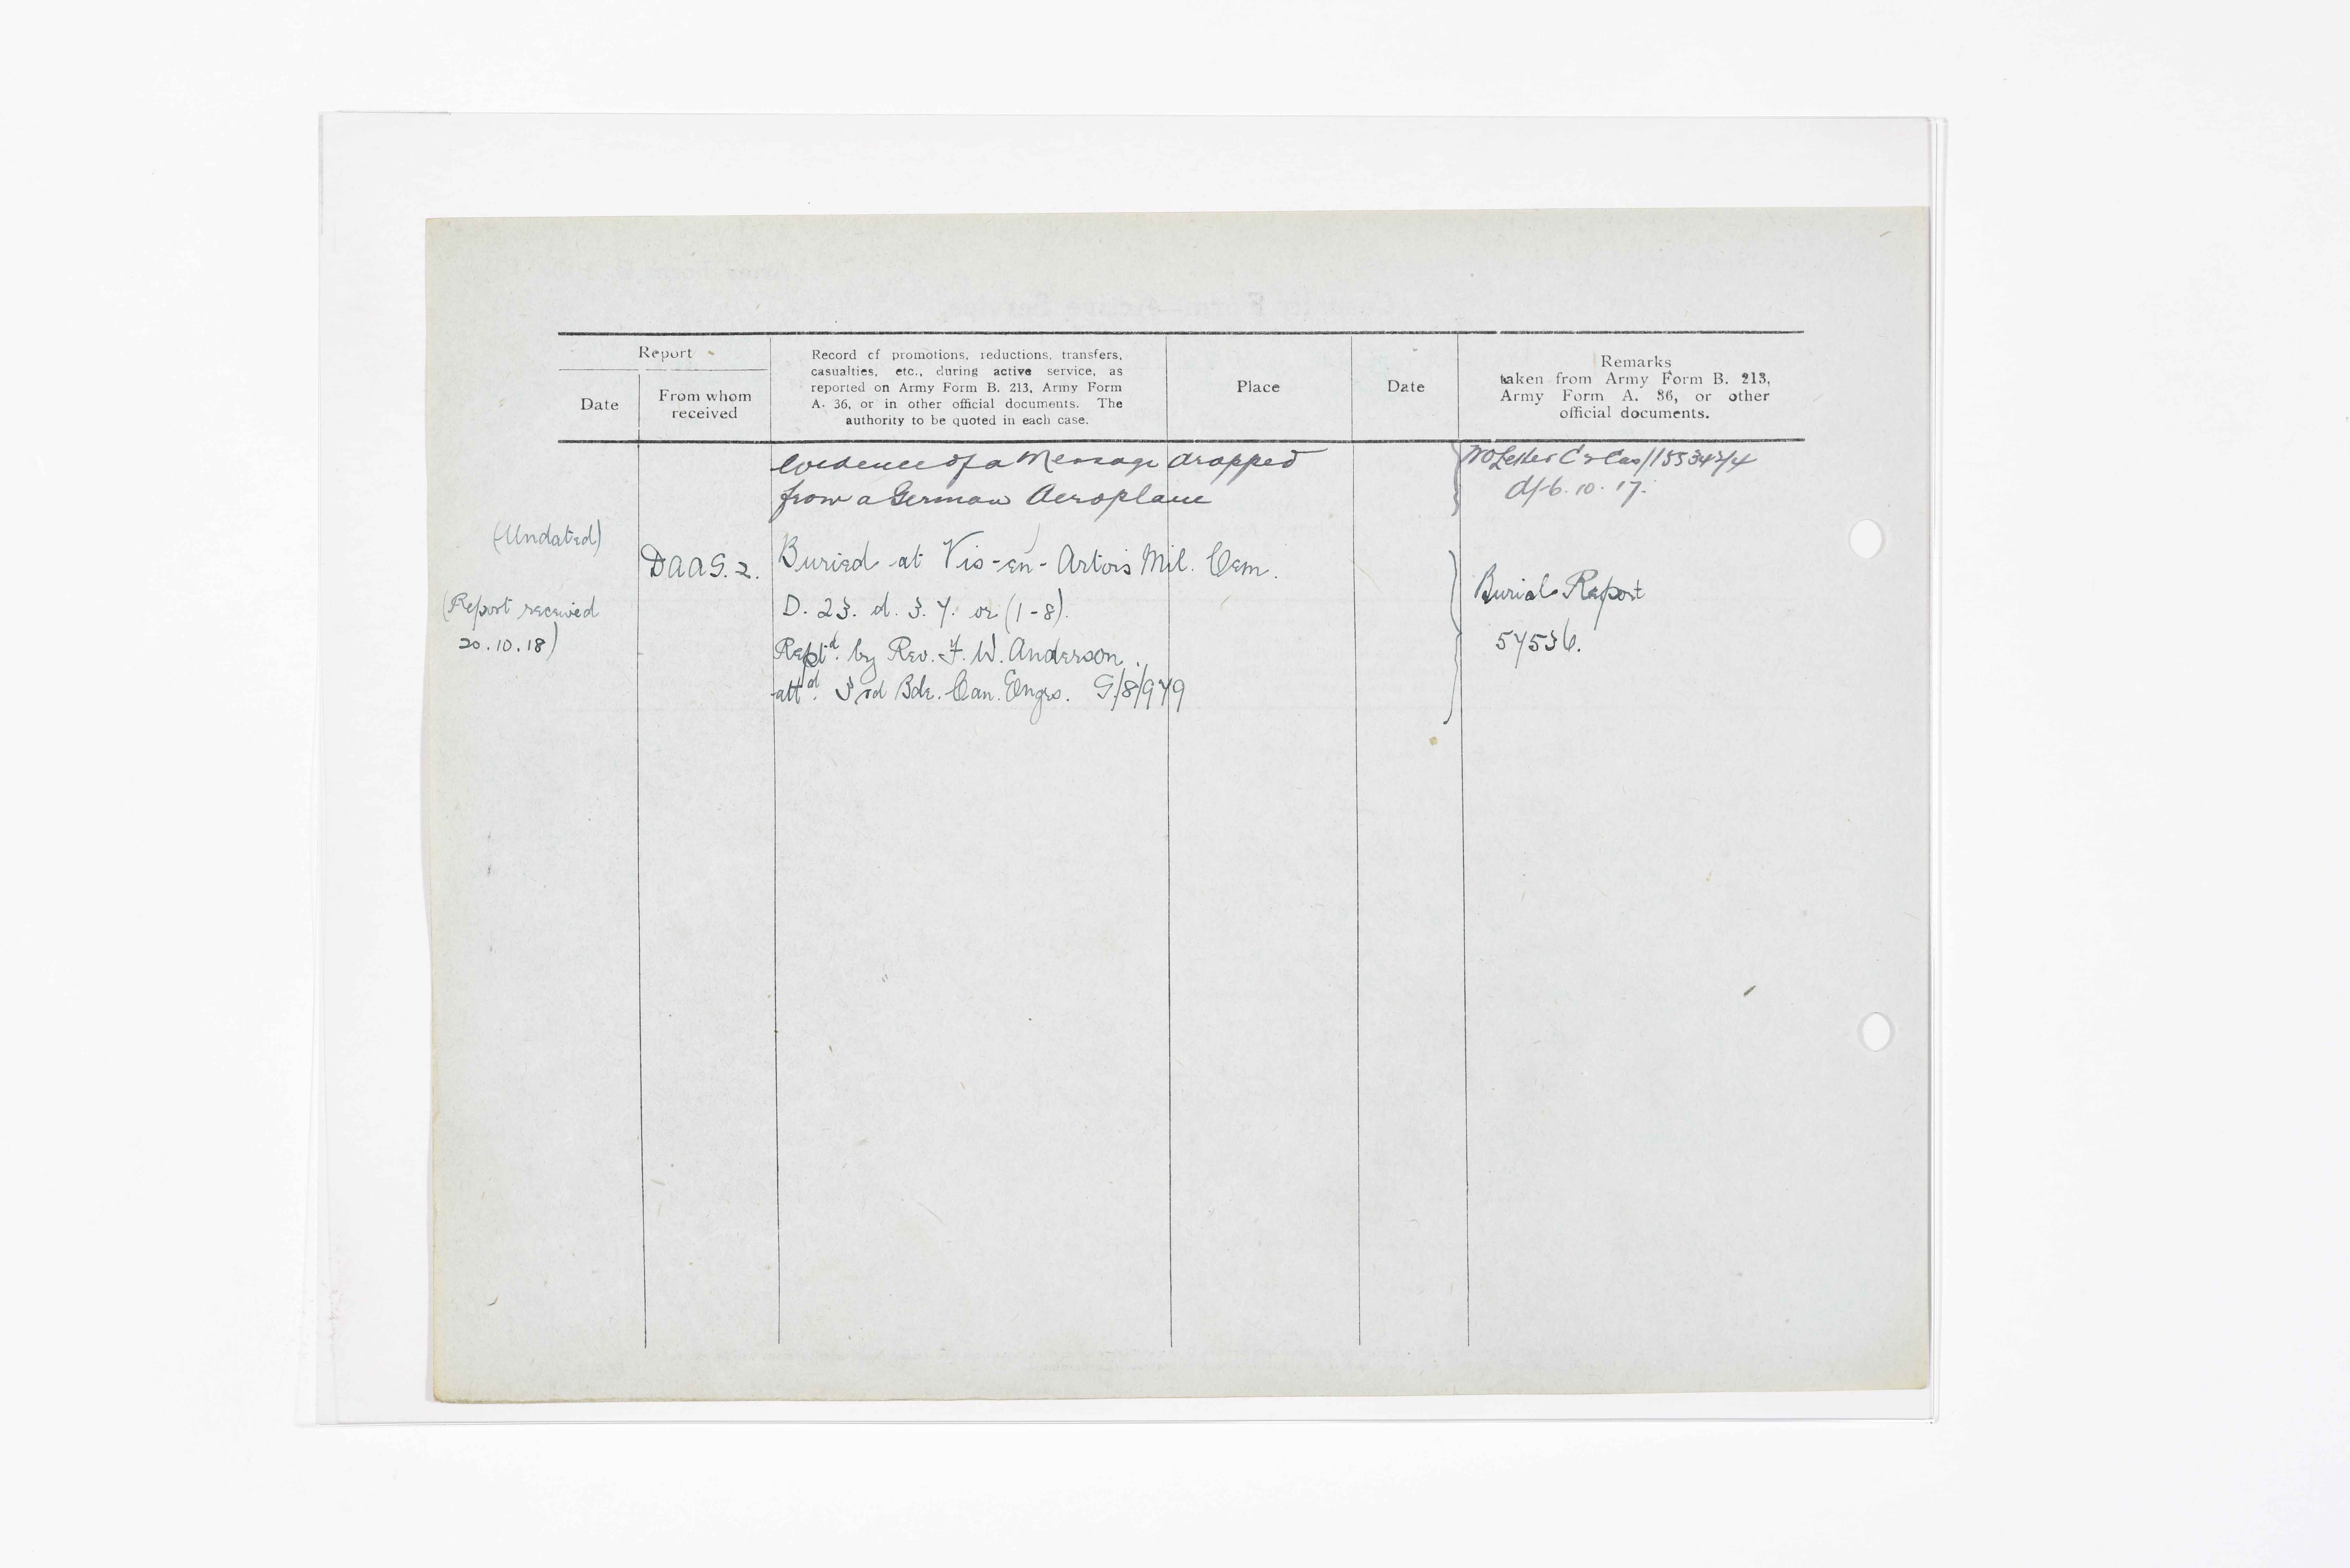 Report
Date
From whom
received
Record of promotions, reductions, transfers,
casualties, etc., during active service, as
reported on Army Form B. 213, Army Form
A. 36, or in other official documents. The
authority to be quoted in each case.
Place
Date
Remarks
taken from Army Form B. 213,
Army Form A. 36, or other
official documents.
Evidence of a Message dropped
from a German Aeroplane
WO Letter C2 Cas/
d/ 6.10.17.
(Undated)
DAAG. 2.
Buried at Vis-en-Artois Mil. Cem.
(Report received
20.10.18)
D. 23. d. 3. 7. or (1-8).
Rept'd. by Rev. F. W. Anderson.
att'd. 3rd Bde. Can. Engrs. G/8/979
Burial Report
57536.